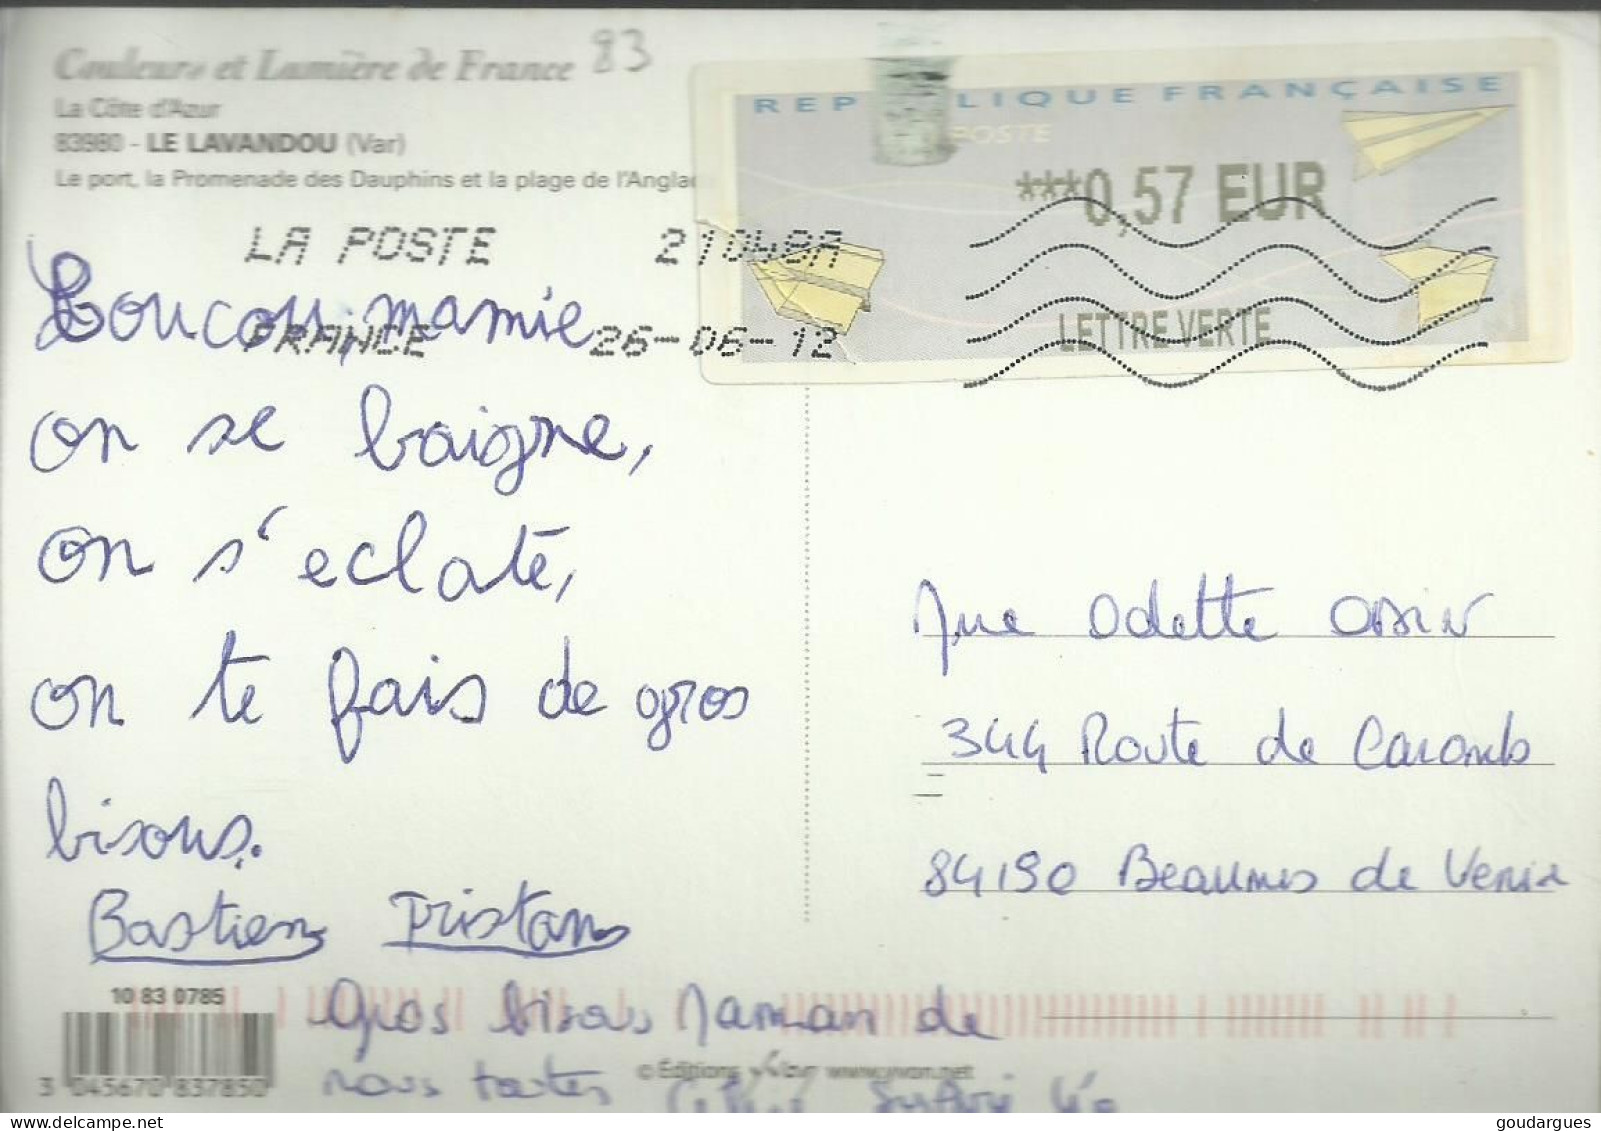 Couleurs et Lumière de France 83
La Côte d'Azur
83980 - LE LAVANDOU (Var)
Le port, la Promenade des Dauphins et la plage de l'Anglade
REPUBLIQUE FRANÇAISE
POSTE
***0,57 EUR
LETTRE VERTE
LA POSTE 21048A
FRANCE 26-06-12
Coucou mamie
on se baigne,
on s'eclate,
on te fais de gros
bisous.
Bastien Tristan
Gros bisous Maman de
nous toutes
Mme Odette
344 Route de Caromb
84190 Beaumes de Venise
10 83 0785
3 045670 837850
© Editions yvon www.yvon.net
goudargues